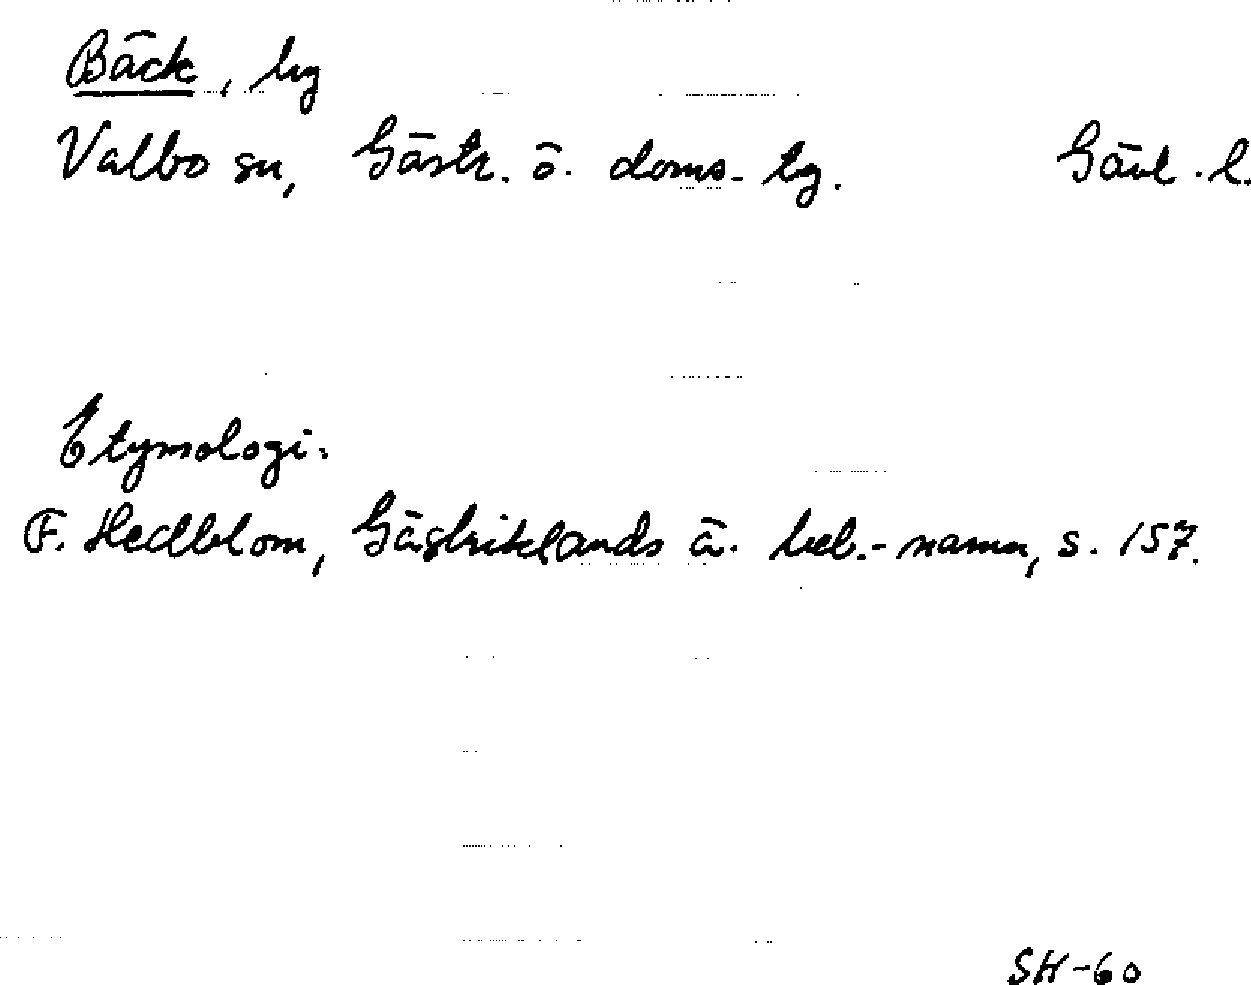 Bäck, by
Valbo sn, Gästr. ö. doms. tg. Gävl. l.
Etymologi:
F. Hedblom, Gästriklands ä. beb.-namn, s. 157.
SH-60